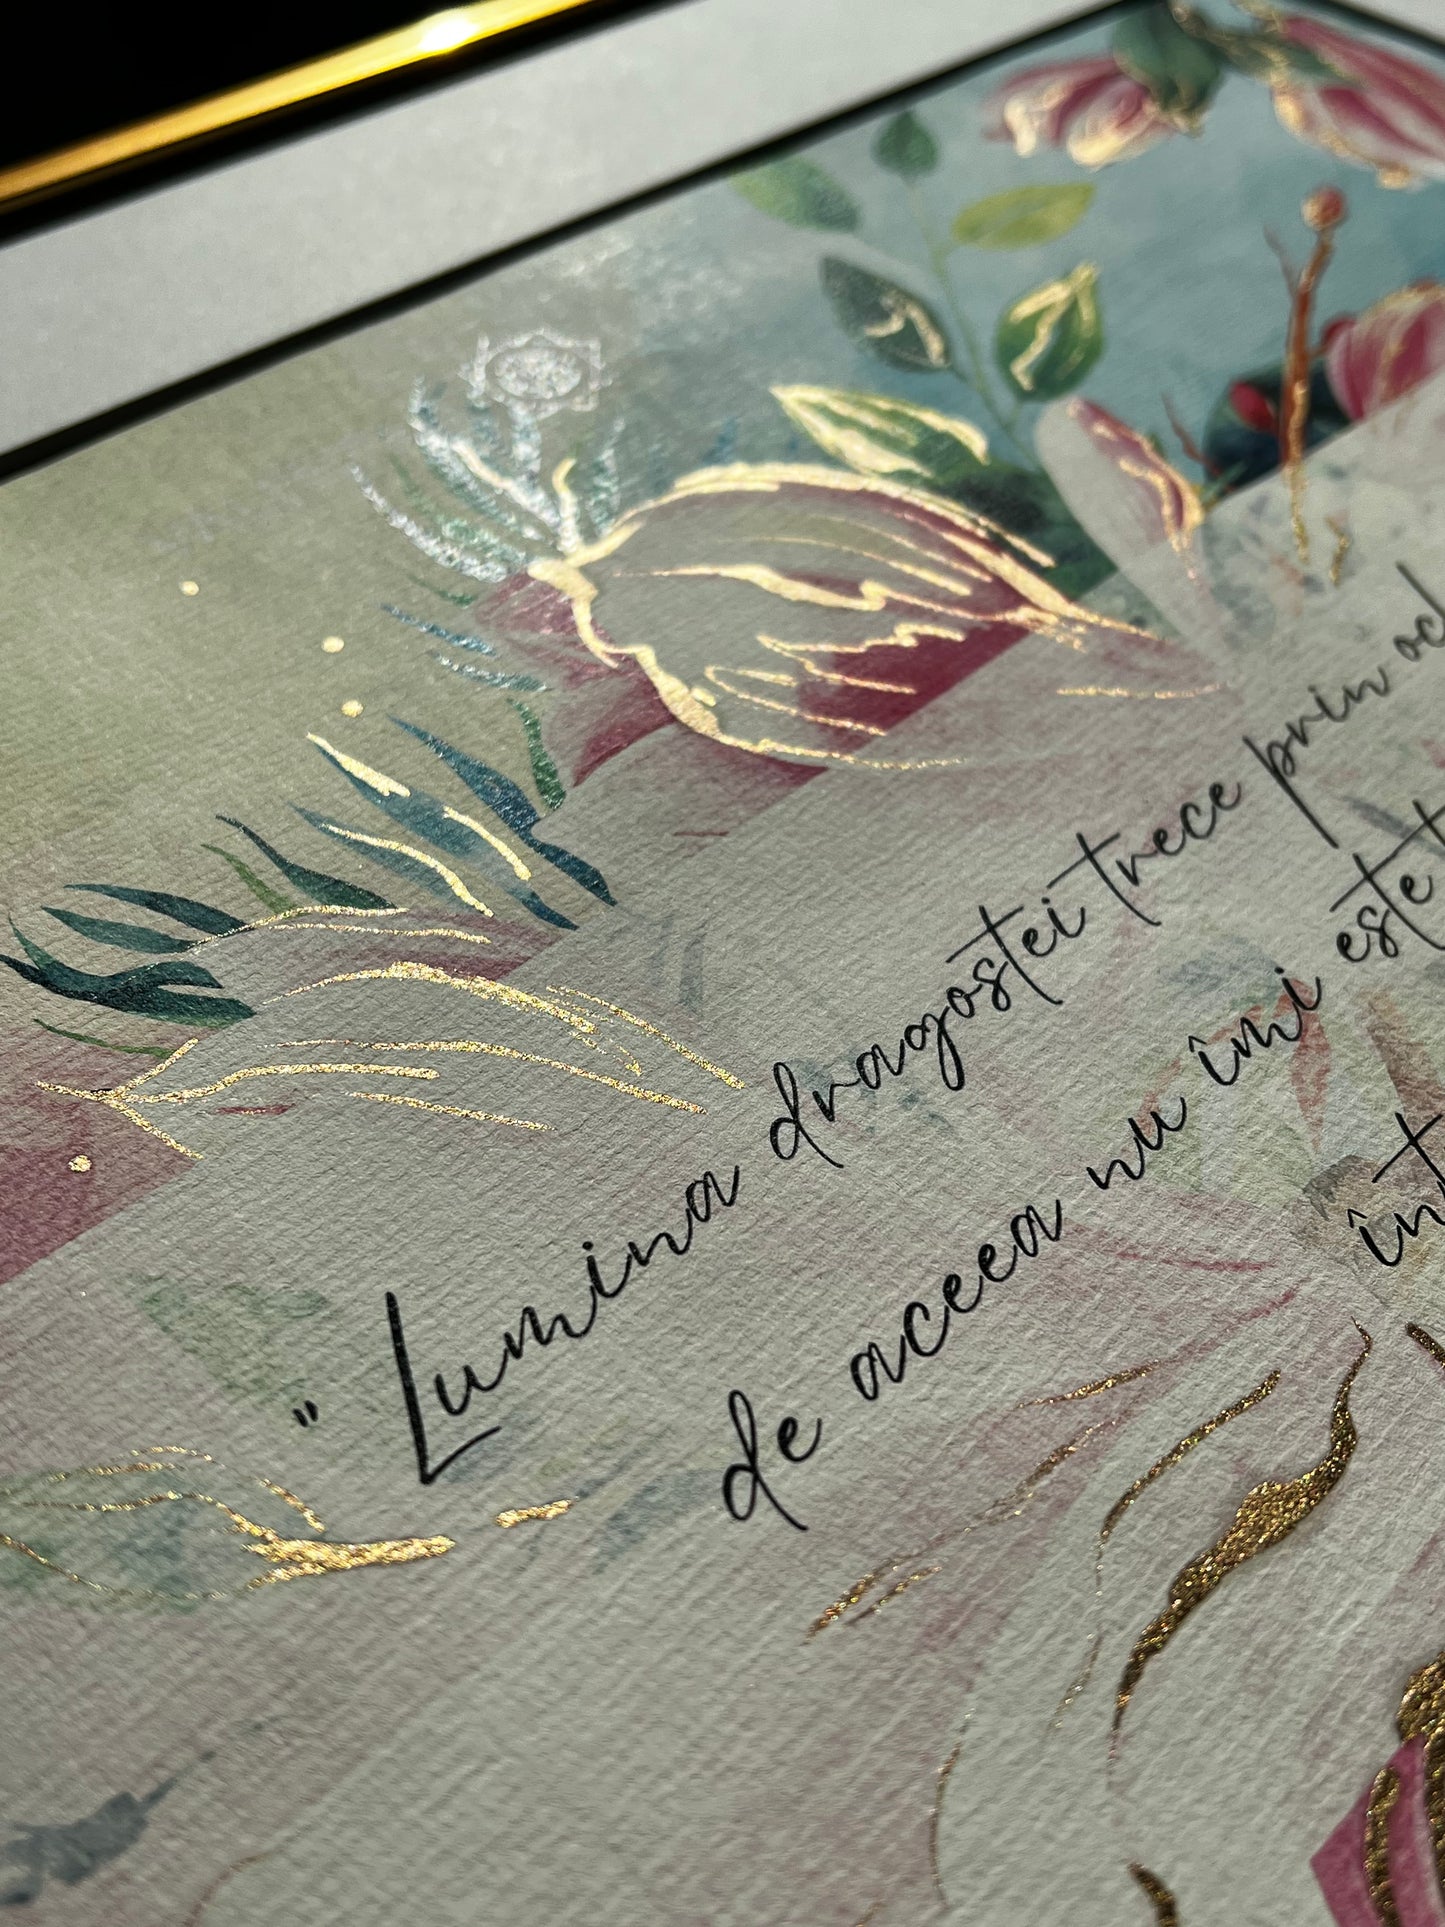 " Lumina dragostei trece prin
de aceea nu îmi este